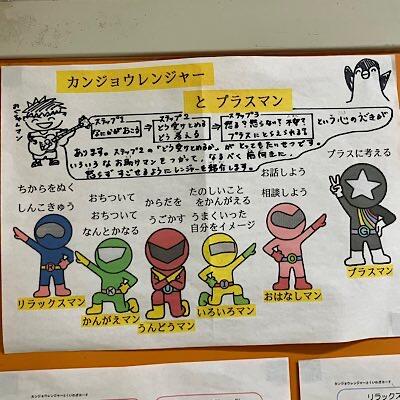 カンジョウレンジャー
と プラスマン
おこりんマン
ステップ1
なにかがおこる
ステップ2
どう受けとめる
どう考える
ステップ3
怒る?怒らない?不安?
プラスにとらえられる?
という心のうごきが
あります。ステップ2の「どう受けとめるか」がとってもたいせつです。
いろいろなお助けマンをつかって、なるべく前向きに、
怒らずすごせるようにレンジャーを紹介します。
ちからをぬく
しんこきゅう
おちついて
おちついて
なんとかなる
からだを
うごかす
たのしいこと
をかんがえる
うまくいった
自分をイメージ
お話しよう
相談しよう
プラスに考える
リラックスマン
かんがえマン
うんどうマン
いろいろマン
おはなしマン
プラスマン
R
K
I
O
G
カンジョウレンジャーとくいわざカード
カンジョウレンジャーとくいわざカード
リラックス